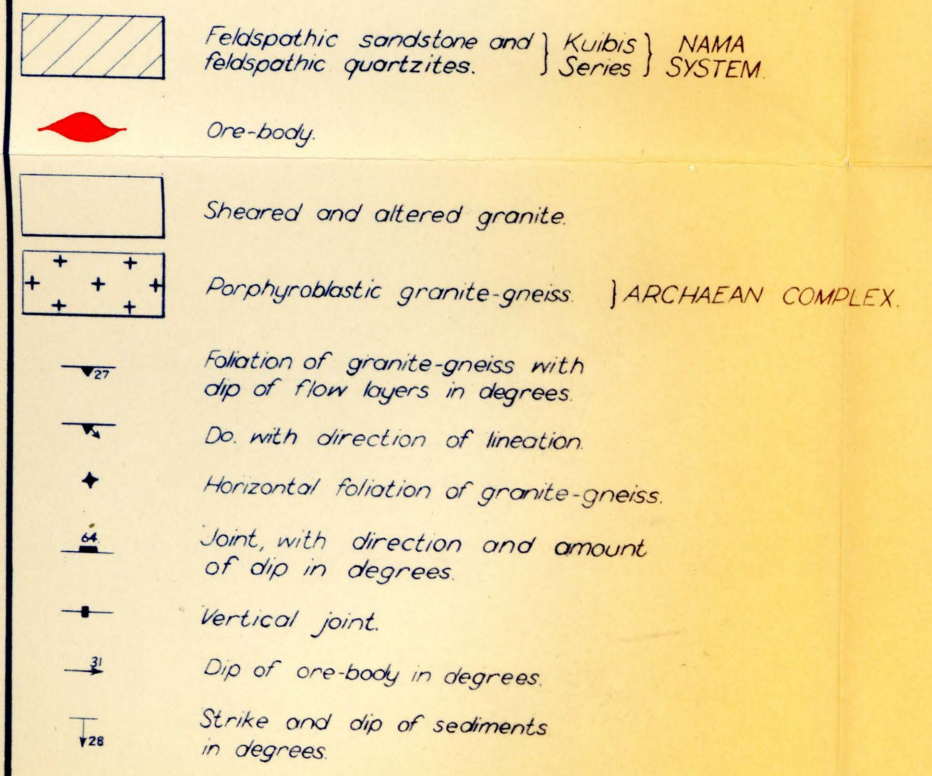 Feldspathic sandstone and } Kuibis } NAMA
feldspathic quartzites. } Series } SYSTEM.
Ore-body.
Sheared and altered granite.
Porphyroblastic granite-gneiss. } ARCHAEAN COMPLEX.
Foliation of granite-gneiss with
27
dip of flow layers in degrees.
Do. with direction of lineation.
Horizontal foliation of granite-gneiss.
64 Joint, with direction and amount
of dip in degrees.
Vertical joint.
31 Dip of ore-body in degrees.
Strike and dip of sediments
28 in degrees.